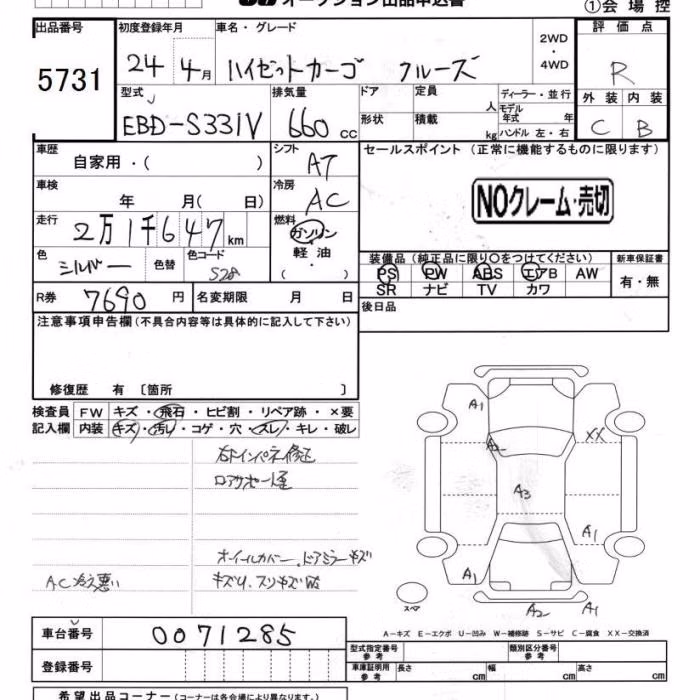 オークション出品申込書
①会場控
出品番号
5731
初度登録年月
24年4月
車名・グレード
ハイゼットカーゴ クルーズ
2WD
・
4WD
評価点
R
型式
EBD-S331V
排気量
660 cc
ドア
定員 人
形状
積載 kg
ディーラー・並行
モデル年式 年
ハンドル 左・右
外装 内装
C B
車歴
自家用・( )
シフト
AT
セールスポイント (正常に機能するものに限ります)
車検
年 月( 日)
冷房
AC
NOクレーム・売切
走行
2万1千647km
燃料
ガソリン
軽油
・( )
色
シルバー
色替
色コード
S28
装備品 (純正品に限り○をつけてください)
PS PW ABS エアB AW
SR ナビ TV カワ
新車保証書
有・無
R券 7690円
名変期限 月 日
後日品
注意事項申告欄(不具合内容等は具体的に記入して下さい)
修復歴 有 〔箇所 〕
検査員記入欄
FW キズ・飛石・ヒビ割・リペア跡・×要
内装 キズ・汚レ・コゲ・穴・スレ・キレ・破レ
右インパネ修正
ロアサポート歪
ホイールカバー、ドアミラーキズ
AC冷え悪い
A1
A2
XX
A3
A1
A1
A2
A1
スペア
A-キズ E-エクボ U-凹み W-補修跡 S-サビ C-腐食 XX-交換済
車台番号
0071285
登録番号
型式指定番号 参考
類別区分番号 参考
車庫証明用 参考
長さ cm
幅 cm
高さ cm
希望出品コーナー(コーナーは各会場により異なります。)